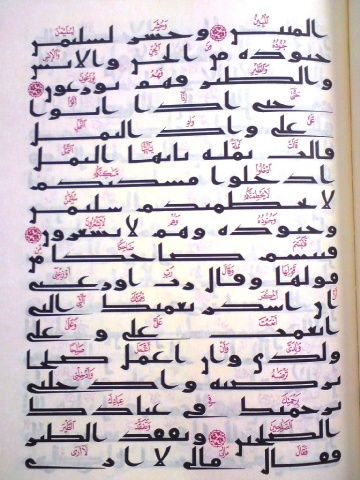 المبين وحشر لسليمن
جنوده من الجن والانس
والطير فهم يوزعون
حتى اذا اتوا
على واد النمل
قالت نملة يايها النمل
ادخلوا مسكنكم
لا يحطمنكم سليمن
وجنوده وهم لا يشعرون
فتبسم ضاحكا من
قولها وقال رب اوزعني
ان اشكر نعمتك التي
انعمت علي وعلى
ولدي وان اعمل صلحا
ترضيه وادخلني
برحمتك في عبادك
الصلحين وتفقد الطير
فقال مالي لا ارى